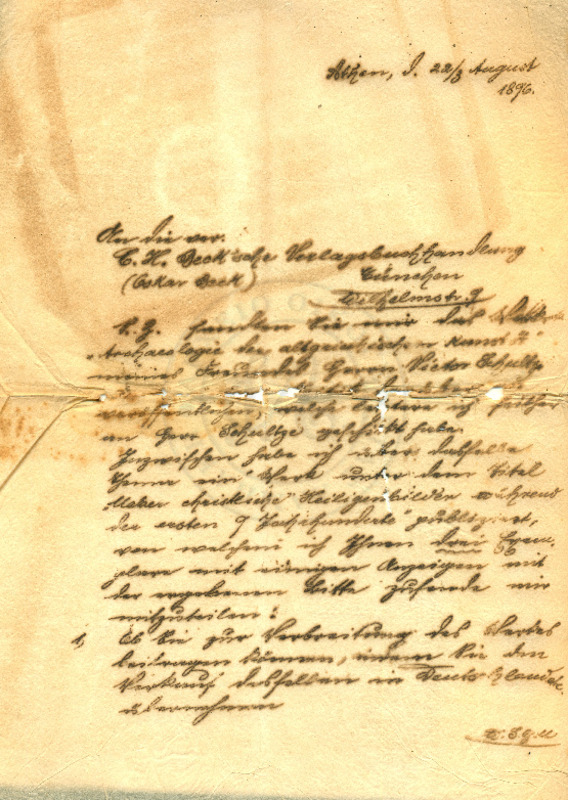 Athen, d. 22/3 August
1896.
An die ver.
C. H. Beck'sche Verlagsbuchhandlung
(Oskar Beck) München
Wilhelmstr. 9
sandten Sie mir das Werk
"Archaeologie der altchristlichen Kunst"
meines Freundes Herrn Victor Schultze
veröffentlichen, welche letztere ich früher
an Herr Schultze geschickt habe.
Inzwischen habe ich über dasselbe
Thema ein Werk unter dem Titel
Ueber christliche Heiligenbilder während
der ersten 9 Jahrhunderte" publiziert,
von welchem ich Ihnen drei Exem-
plare mit einigen Anzeigen mit
der ergebenen Bitte zusende mir
mitzuteilen:
1, Ob Sie zur Verbreitung des Werkes
beitragen können, indem Sie den
Verkauf desselben in Deutschland
übernehmen